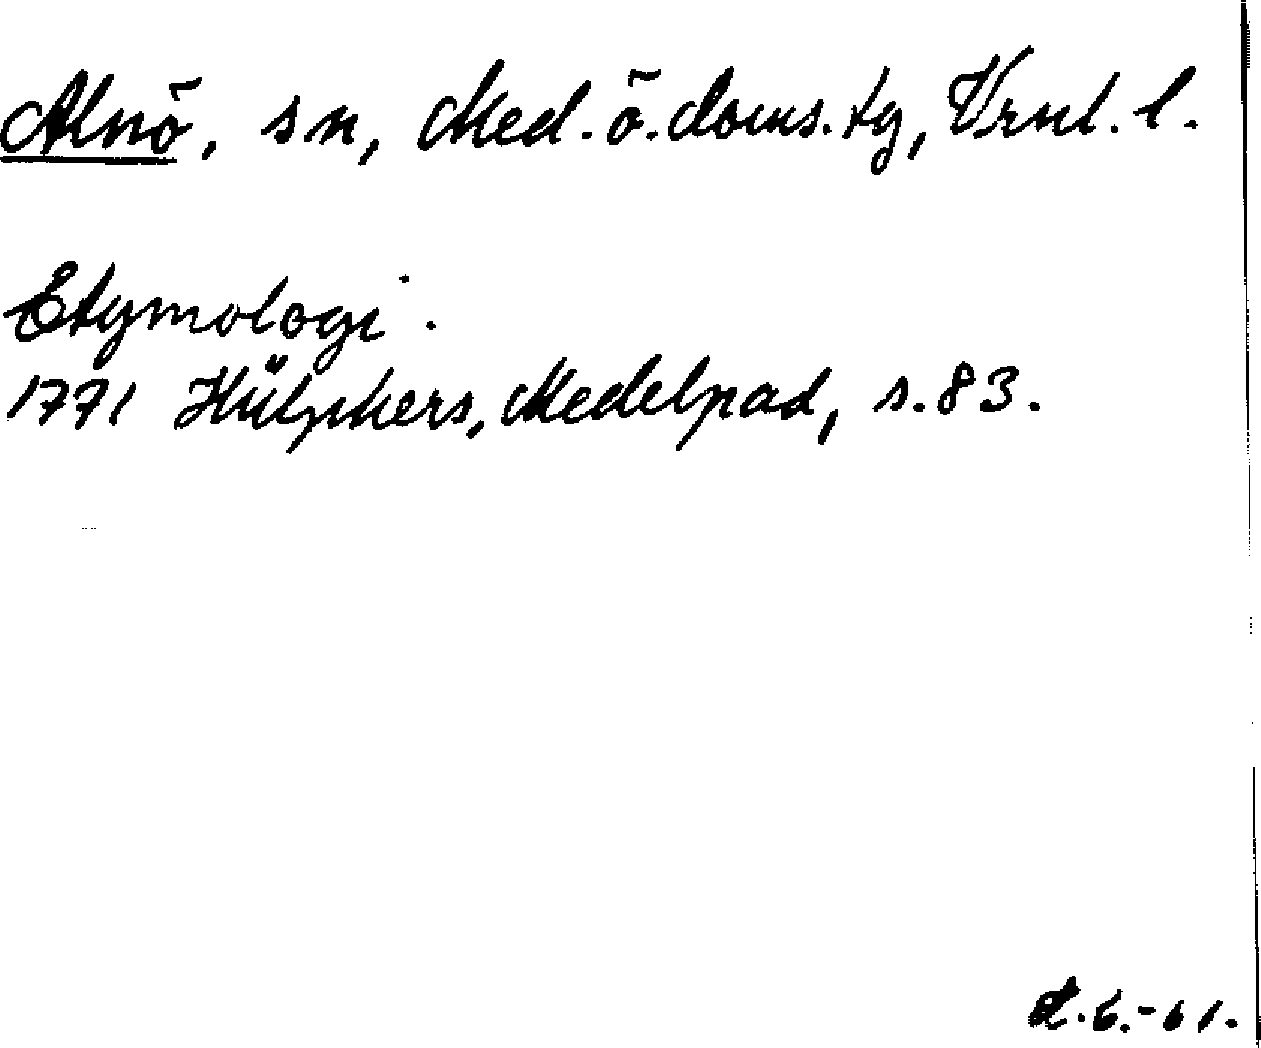 Alnö, sn, Med. ö. doms. tg, Vrnl. l.
Etymologi.
1771 Hülphers, Medelpad, s. 83.
L.G.-61.